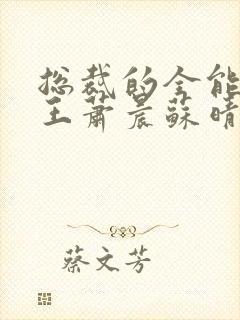 总裁的全能
王萧晨苏晴
蔡文芳